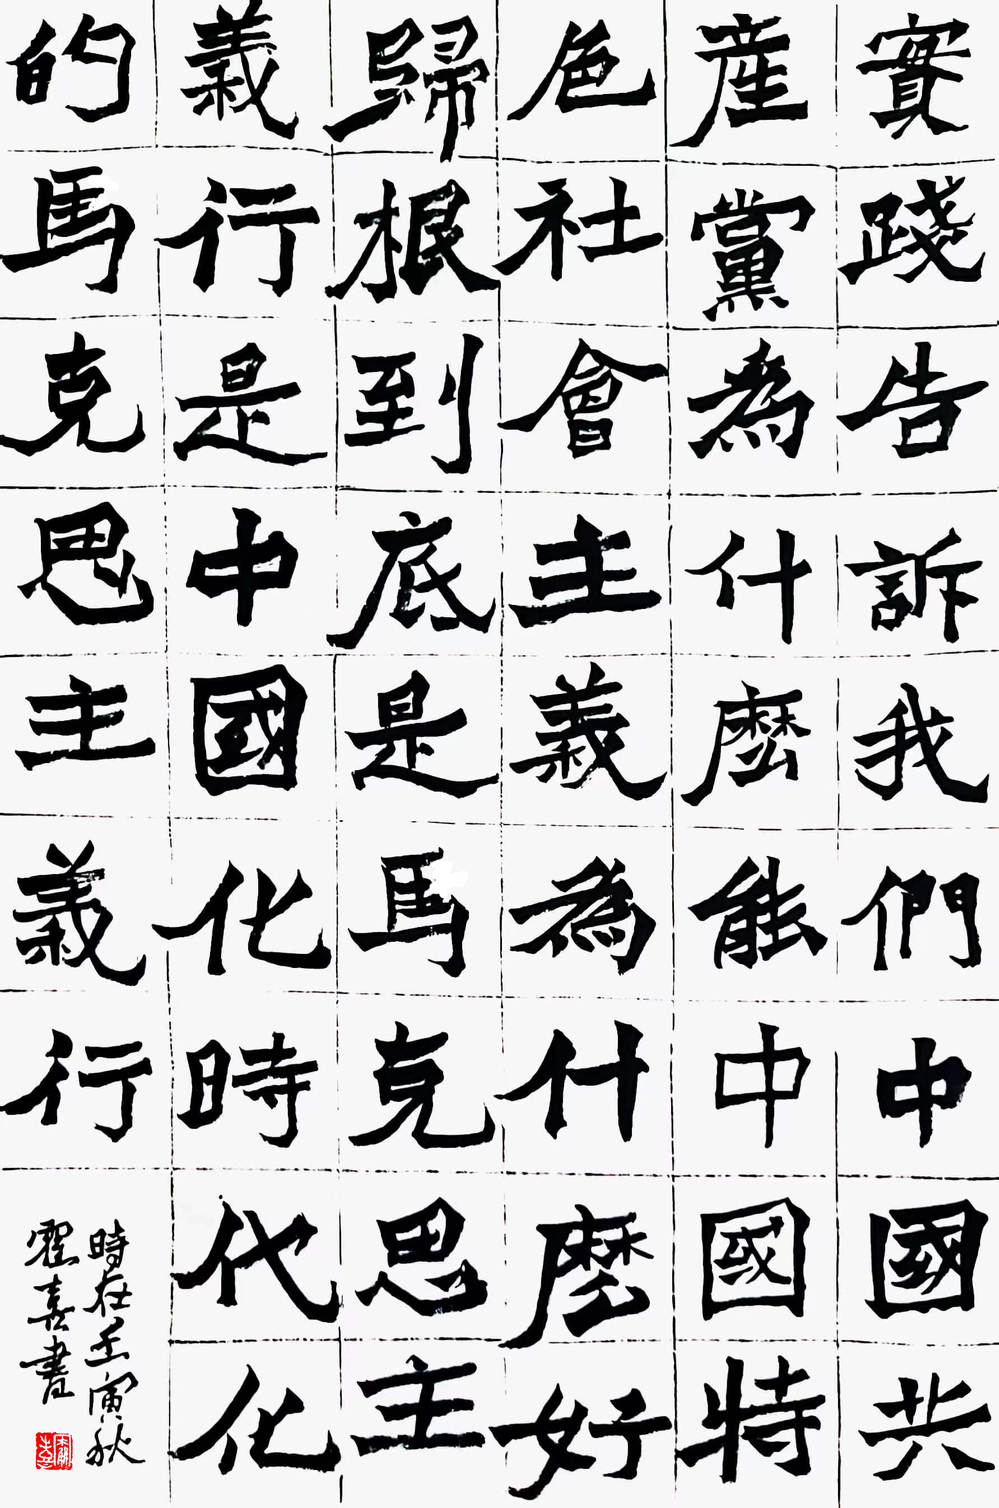 實踐告訴我們中國共
産黨為什麼能中國特
色社會主義為什麼好
歸根到底是馬克思主
義行是中國化時代化
的馬克思主義行
時在壬寅秋
喜書